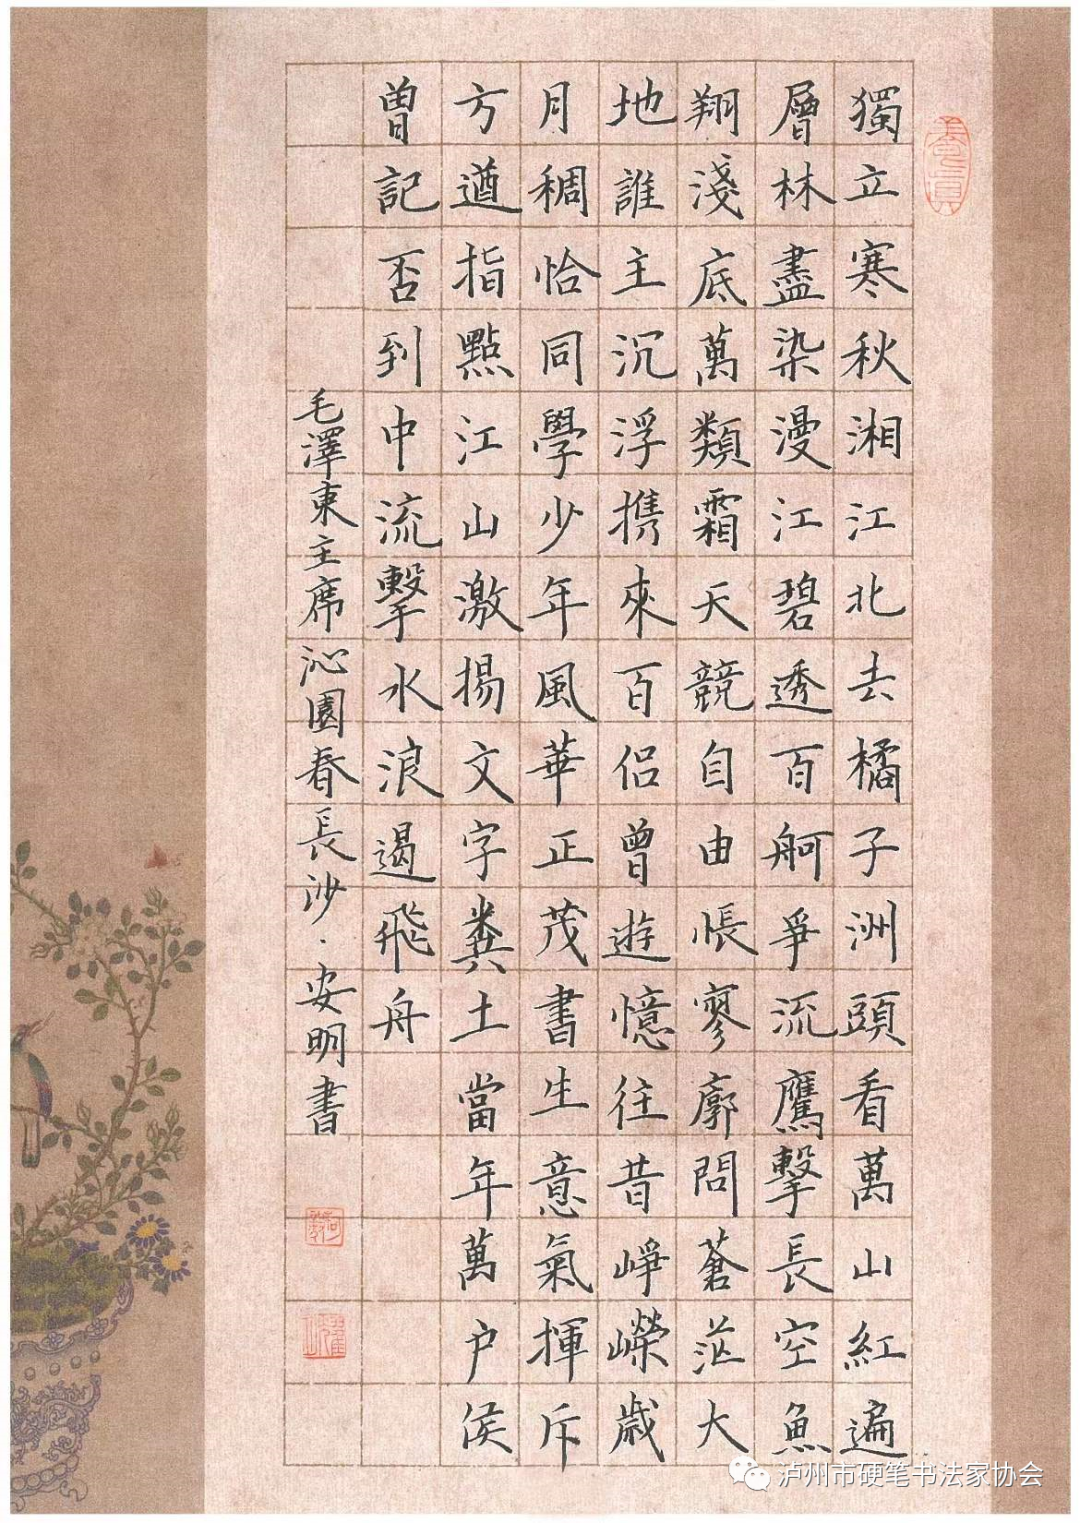 獨立寒秋湘江北去橘子洲頭看萬山紅遍
層林盡染漫江碧透百舸爭流鷹擊長空魚
翔淺底萬類霜天競自由悵寥廓問蒼茫大
地誰主沉浮携來百侣曾遊憶往昔崢嶸歲
月稠恰同學少年風華正茂書生意氣揮斥
方遒指點江山激揚文字糞土當年萬户侯
曾記否到中流擊水浪遏飛舟
毛澤東主席沁園春長沙·安明書
泸州市硬笔书法家协会